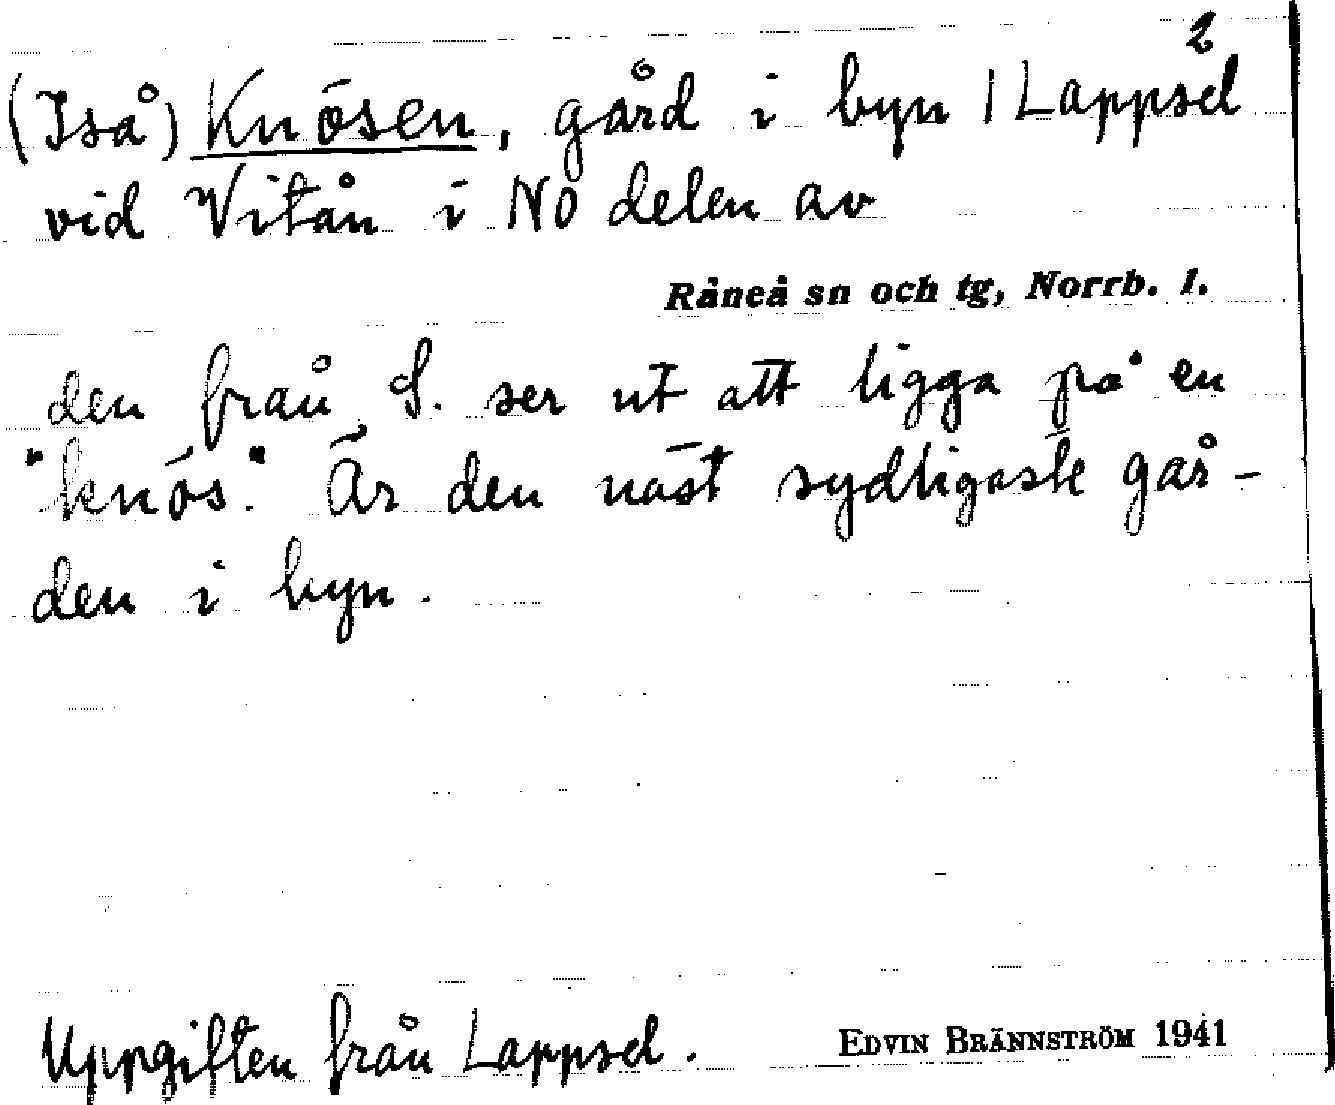 2
(Iså) Knösen, gård i byn | Lappsel
vid Vitån i NO delen av
Råneå sn och tg, Norrb. l.
den från S. ser ut att ligga på en
"knös." Är den näst sydligaste går-
den i byn.
Uppgiften från Lappsel. EDVIN BRÄNNSTRÖM 1941